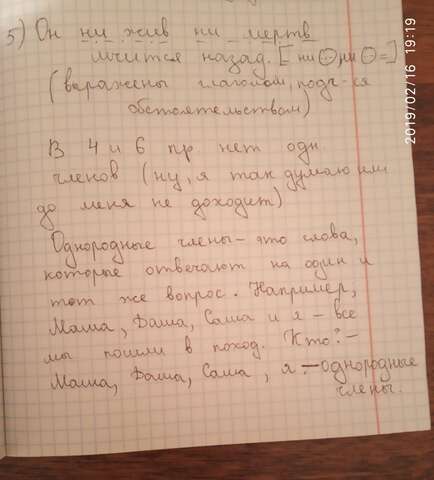 5) Он ни жив ни мертв
мчится назад. [ни ⊙, ни ⊙ =]
(выражены глаголом, подч-ся
обстоятельством)
В 4 и 6 пр. нет одн
членов (ну, я так думаю или
до меня не доходит)
Однородные члены - это слова,
которые отвечают на один и
тот же вопрос. Например,
Маша, Даша, Саша и я - все
мы пошли в поход. Кто? -
Маша, Даша, Саша, я - однородные
члены.
2019/02/16 19:19